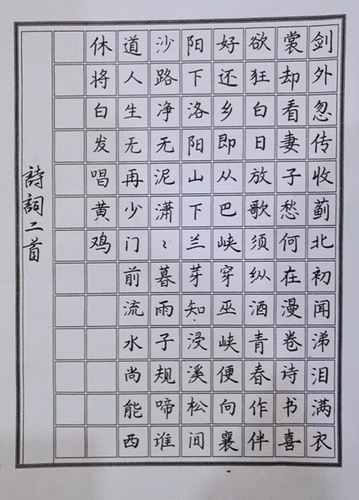 剑外忽传收蓟北初闻涕泪满衣
裳却看妻子愁何在漫卷诗书喜
欲狂白日放歌须纵酒青春作伴
好还乡即从巴峡穿巫峡便向襄
阳下洛阳山下兰芽知浸溪松间
沙路净无泥潇〻暮雨子规啼谁
道人生无再少门前流水尚能西
休将白发唱黄鸡
詩詞二首